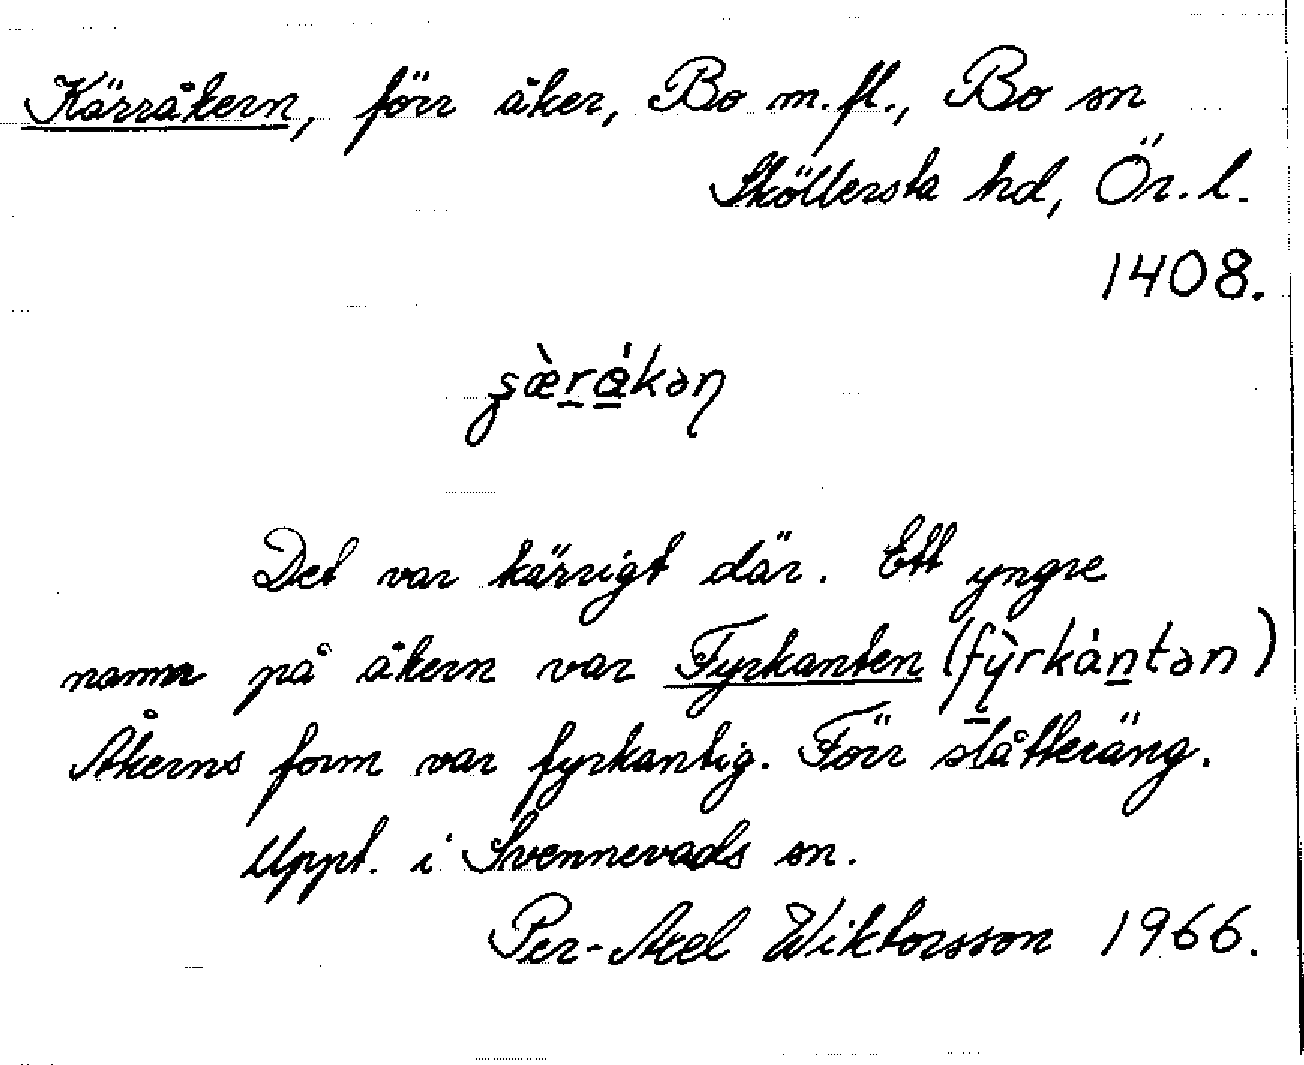 Kärråkern, förr åker, Bo m.fl., Bo sn
Sköllersta hd, Ör. l.
1408.
Det var kärrigt där. Ett yngre
namn på åkern var Fyrkanten (fỳrkántən)
Åkerns form var fyrkantig. Förr slåtteräng.
Uppt. i Svennevads sn.
Per-Axel Wiktorsson 1966.